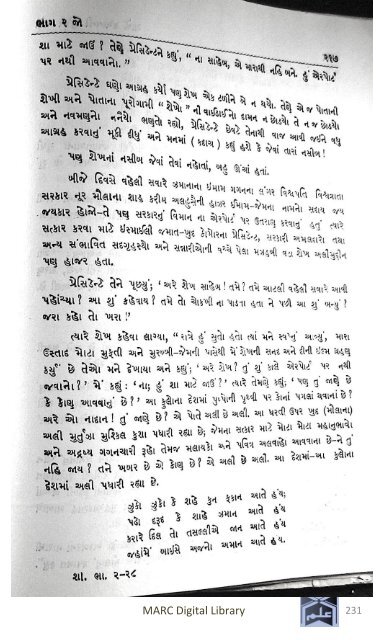 ભાગ ૨ જો
૨૧૭
શા માટે જાઉં ? તેણે પ્રેસિડેન્ટને કહ્યું, “ ના સાહેબ, એ મારાથી નહિ બને. હું એરપોર્ટ
પર નથી આવવાનો. ”
પ્રેસિડેન્ટે ઘણો આગ્રહ કર્યો પણ શેખ એક ટળીને બે ન થયો. તેણે એ જ પોતાની
શેખી અને પોતાના પૂરોગામી “ શેખો ” ની વાઈઢાઈનો દામન ન છોડ્યો તે ન જ છોડ્યો
અને નવમણનો નનૈયો ભણતો રહ્યો, પ્રેસિડેન્ટે છેવટે તેનાથી વાજ આવી જઈને વધુ
આગ્રહ કરવાનું મૂકી દીધું અને મનમાં ( કદાચ ) કહ્યું હશે કે જેવાં તારાં નસીબ !
પણ શેખનાં નસીબ જેવાં તેવાં નહોતાં, બહુ ઊંચાં હતાં.
બીજે દિવસે વહેલી સવારે ઝમાનાના ઇમામ ગગનના લંગર વિશ્વપતિ વિશ્વત્રાતા
સરકાર નૂર મૌલાના શાહ કરીમ અલહુસૈની હાઝર ઇમામ–જેમના નામનો સદાય જય
જયકાર હોજો–તે પણ સરકારનું વિમાન ના એરપોર્ટ પર ઉતરાણ કરવાનું હતું ત્યારે
સત્કાર કરવા માટે ઇસ્માઈલી જમાત-ખુદ કોમરિના પ્રેસિડેન્ટ, સરકારી અમલદારો તથા
અન્ય સંભાવિત સદગૃહસ્થો અને સન્નારીઓની વચ્ચે પેલા મઝહબી વડા શેખ અલીમુદ્દીન
પણ હાજર હતા.
પ્રેસિડેન્ટે તેને પૂછ્યું; ‘ અરે શેખ સાહેબ ! તમે ? તમે આટલી વહેલી સવારે આવી
પહોંચ્યા ? આ શું કહેવાય ? તમે તો ચોક્ખી ના પાડતા હતા ને પછી આ શું બન્યું ?
જરા કહો તો ખરા !’
ત્યારે શેખ કહેવા લાગ્યા, “ રાત્રે હું સુતો હતો ત્યાં મને સ્વપ્નું આવ્યું, મારા
ઉસ્તાદ મોટા મુફતી અને મુરબ્બી–જેમની પાસેથી મેં શેખની સનદ અને દીની ઇલ્મ ગ્રહણ
કર્યું છે તેઓ મને દેખાયા અને કહ્યું; ‘ અરે શેખ ! તું શું કાલે એરપોર્ટ પર નથી
જવાનો ?’ મેં કહ્યું : ‘ ના; હું શા માટે જાઉં ?’ ત્યારે તેમણે કહ્યું; ‘ પણ તું જાણે છે
કે કોણ આવવાનું છે ?’ આ કુલોના દેશમાં પુષ્પોની પૃથ્વી પર કોનાં પગલાં થવાનાં છે ?
અરે ઓ નાદાન ! તું જાણે છે ? એ પોતે અલી છે અલી. આ ધરતી ઉપર ખુદ (મૌલાના)
અલી મુર્તુઝા મુશ્કિલ કુશા પધારી રહ્યા છે; જેમના સત્કાર માટે મોટા મોટા મહાનુભાવો
અને અદ્રશ્ય ગગનચારી રૂહો તેમજ મલાયકો અને પવિત્ર અલવાહો આવવાના છે–ને તું
નહિ જાય ? તને ખબર છે એ કોણ છે ? એ અલી છે અલી. આ દેશમાં–આ કુલોના
દેશમાં અલી પધારી રહ્યા છે.
ઝુકો ઝુકો કે શહે કુન ફકાન આતે હંય;
પઢો દરૂદ કે શાહે ઝમાન આતે હંય
કરારે દિલ તો તસલ્લીએ જાન આતે હંય
જહાંમેં બાઈસે અમનો અમાન આતે હંય.
શો. ભા. ૨-૨૮
MARC Digital Library
231